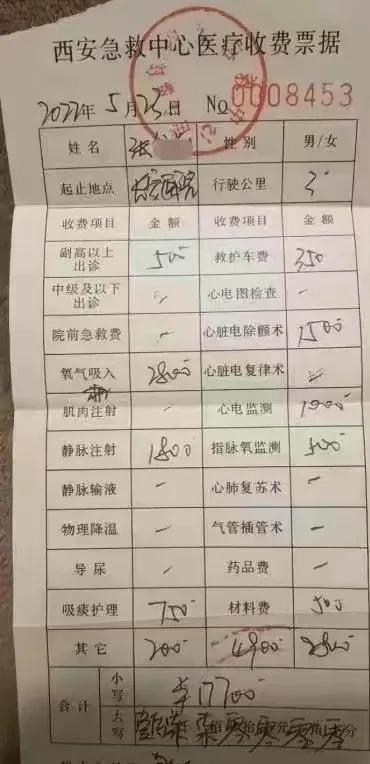 西安急救中心医疗收费票据
2022年 5月23日 No 0008453
姓名 张 性别 男/女
起止地点 医院 行驶公里 3
收费项目 金额 收费项目 金额
副高以上出诊 500 救护车费 350
中级及以下出诊 - 心电图检查 -
院前急救费 - 心脏电除颤术 1500
氧气吸入 2800 心脏电复律术 -
肌肉注射 - 心电监测 1000
静脉注射 1800 指脉氧监测 500
静脉输液 - 心肺复苏术 -
物理降温 - 气管插管术 -
导尿 - 药品费 -
吸痰护理 750 材料费 500
其它 200 4900
合计 小写 ¥17700
大写 柒 零 拾 零 元 零 零 分